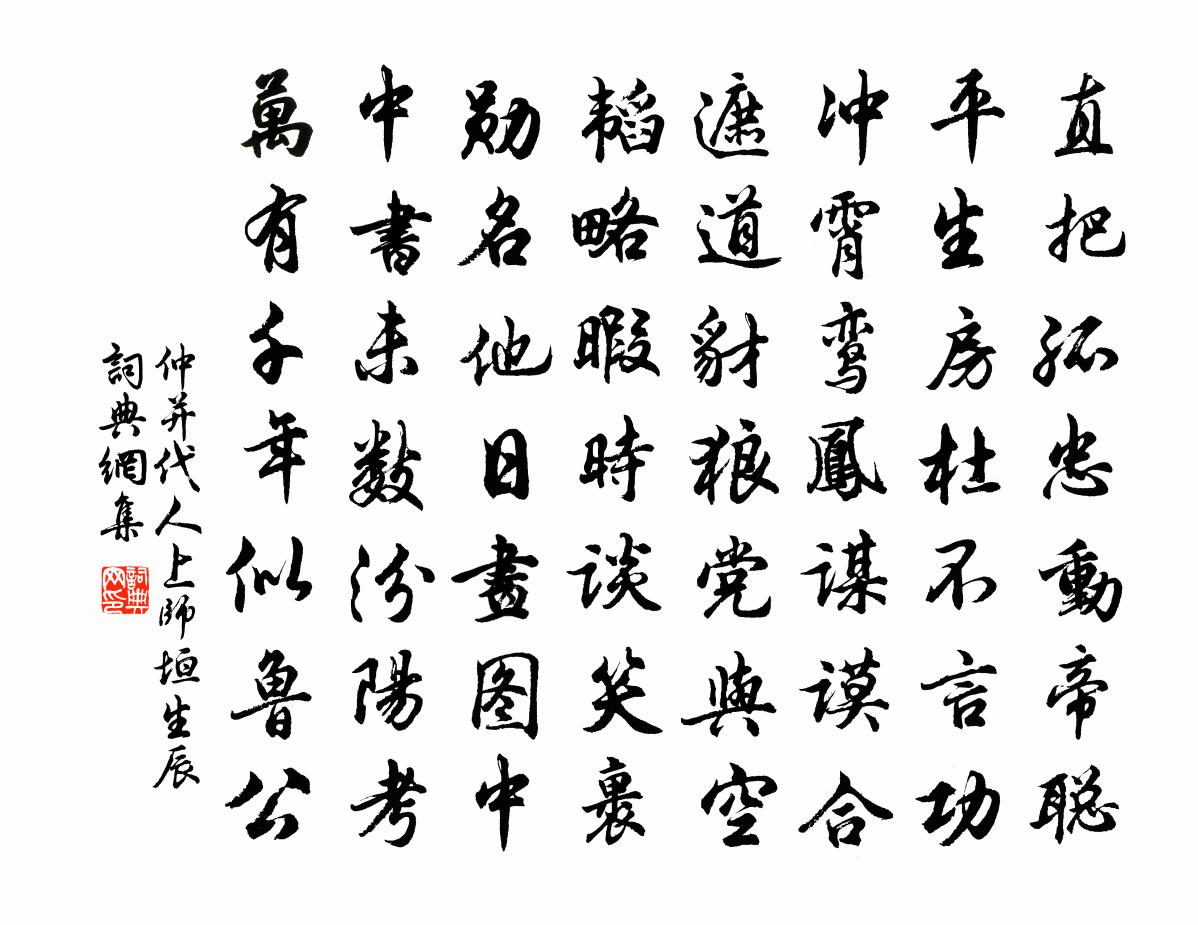 直把孤忠動帝聡
平生房杜不言功
冲霄鸾鳳謀謨合
遮道豺狼党與空
韬略暇時談笑裏
勋名他日畫图中
中書未数汾陽考
萬有千年似魯公
仲并代人上師垣生辰
詞典網集
詞典网印